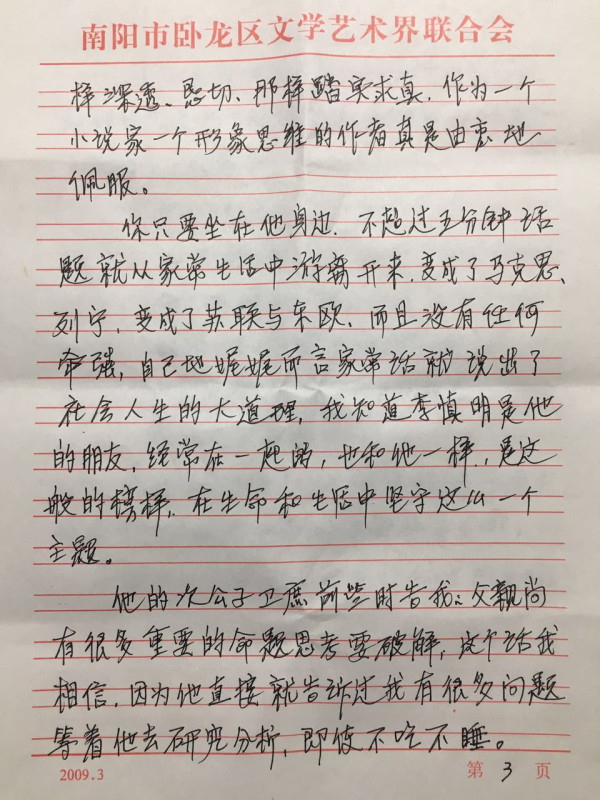 南阳市卧龙区文学艺术界联合会
样深透、恳切、那样踏实求真，作为一个
小说家一个形象思维的作者真是由衷地
佩服。
你只要坐在他身边，不超过五分钟话
题就从家常生活中游离开来，变成了马克思、
列宁，变成了苏联与东欧，而且没有任何
牵强，自己地娓娓而言家常话就说出了
社会人生的大道理，我知道李慎明是他
的朋友，经常在一起的，也和他一样，是这
般的榜样，在生命和生活中坚守这么一个
主题。
他的次公子卫庶前些时告我：父亲尚
有很多重要的命题思考要破解，这个话我
相信，因为他直接就告诉过我有很多问题
等着他去研究分析，即使不吃不睡。
2009.3 第 3 页